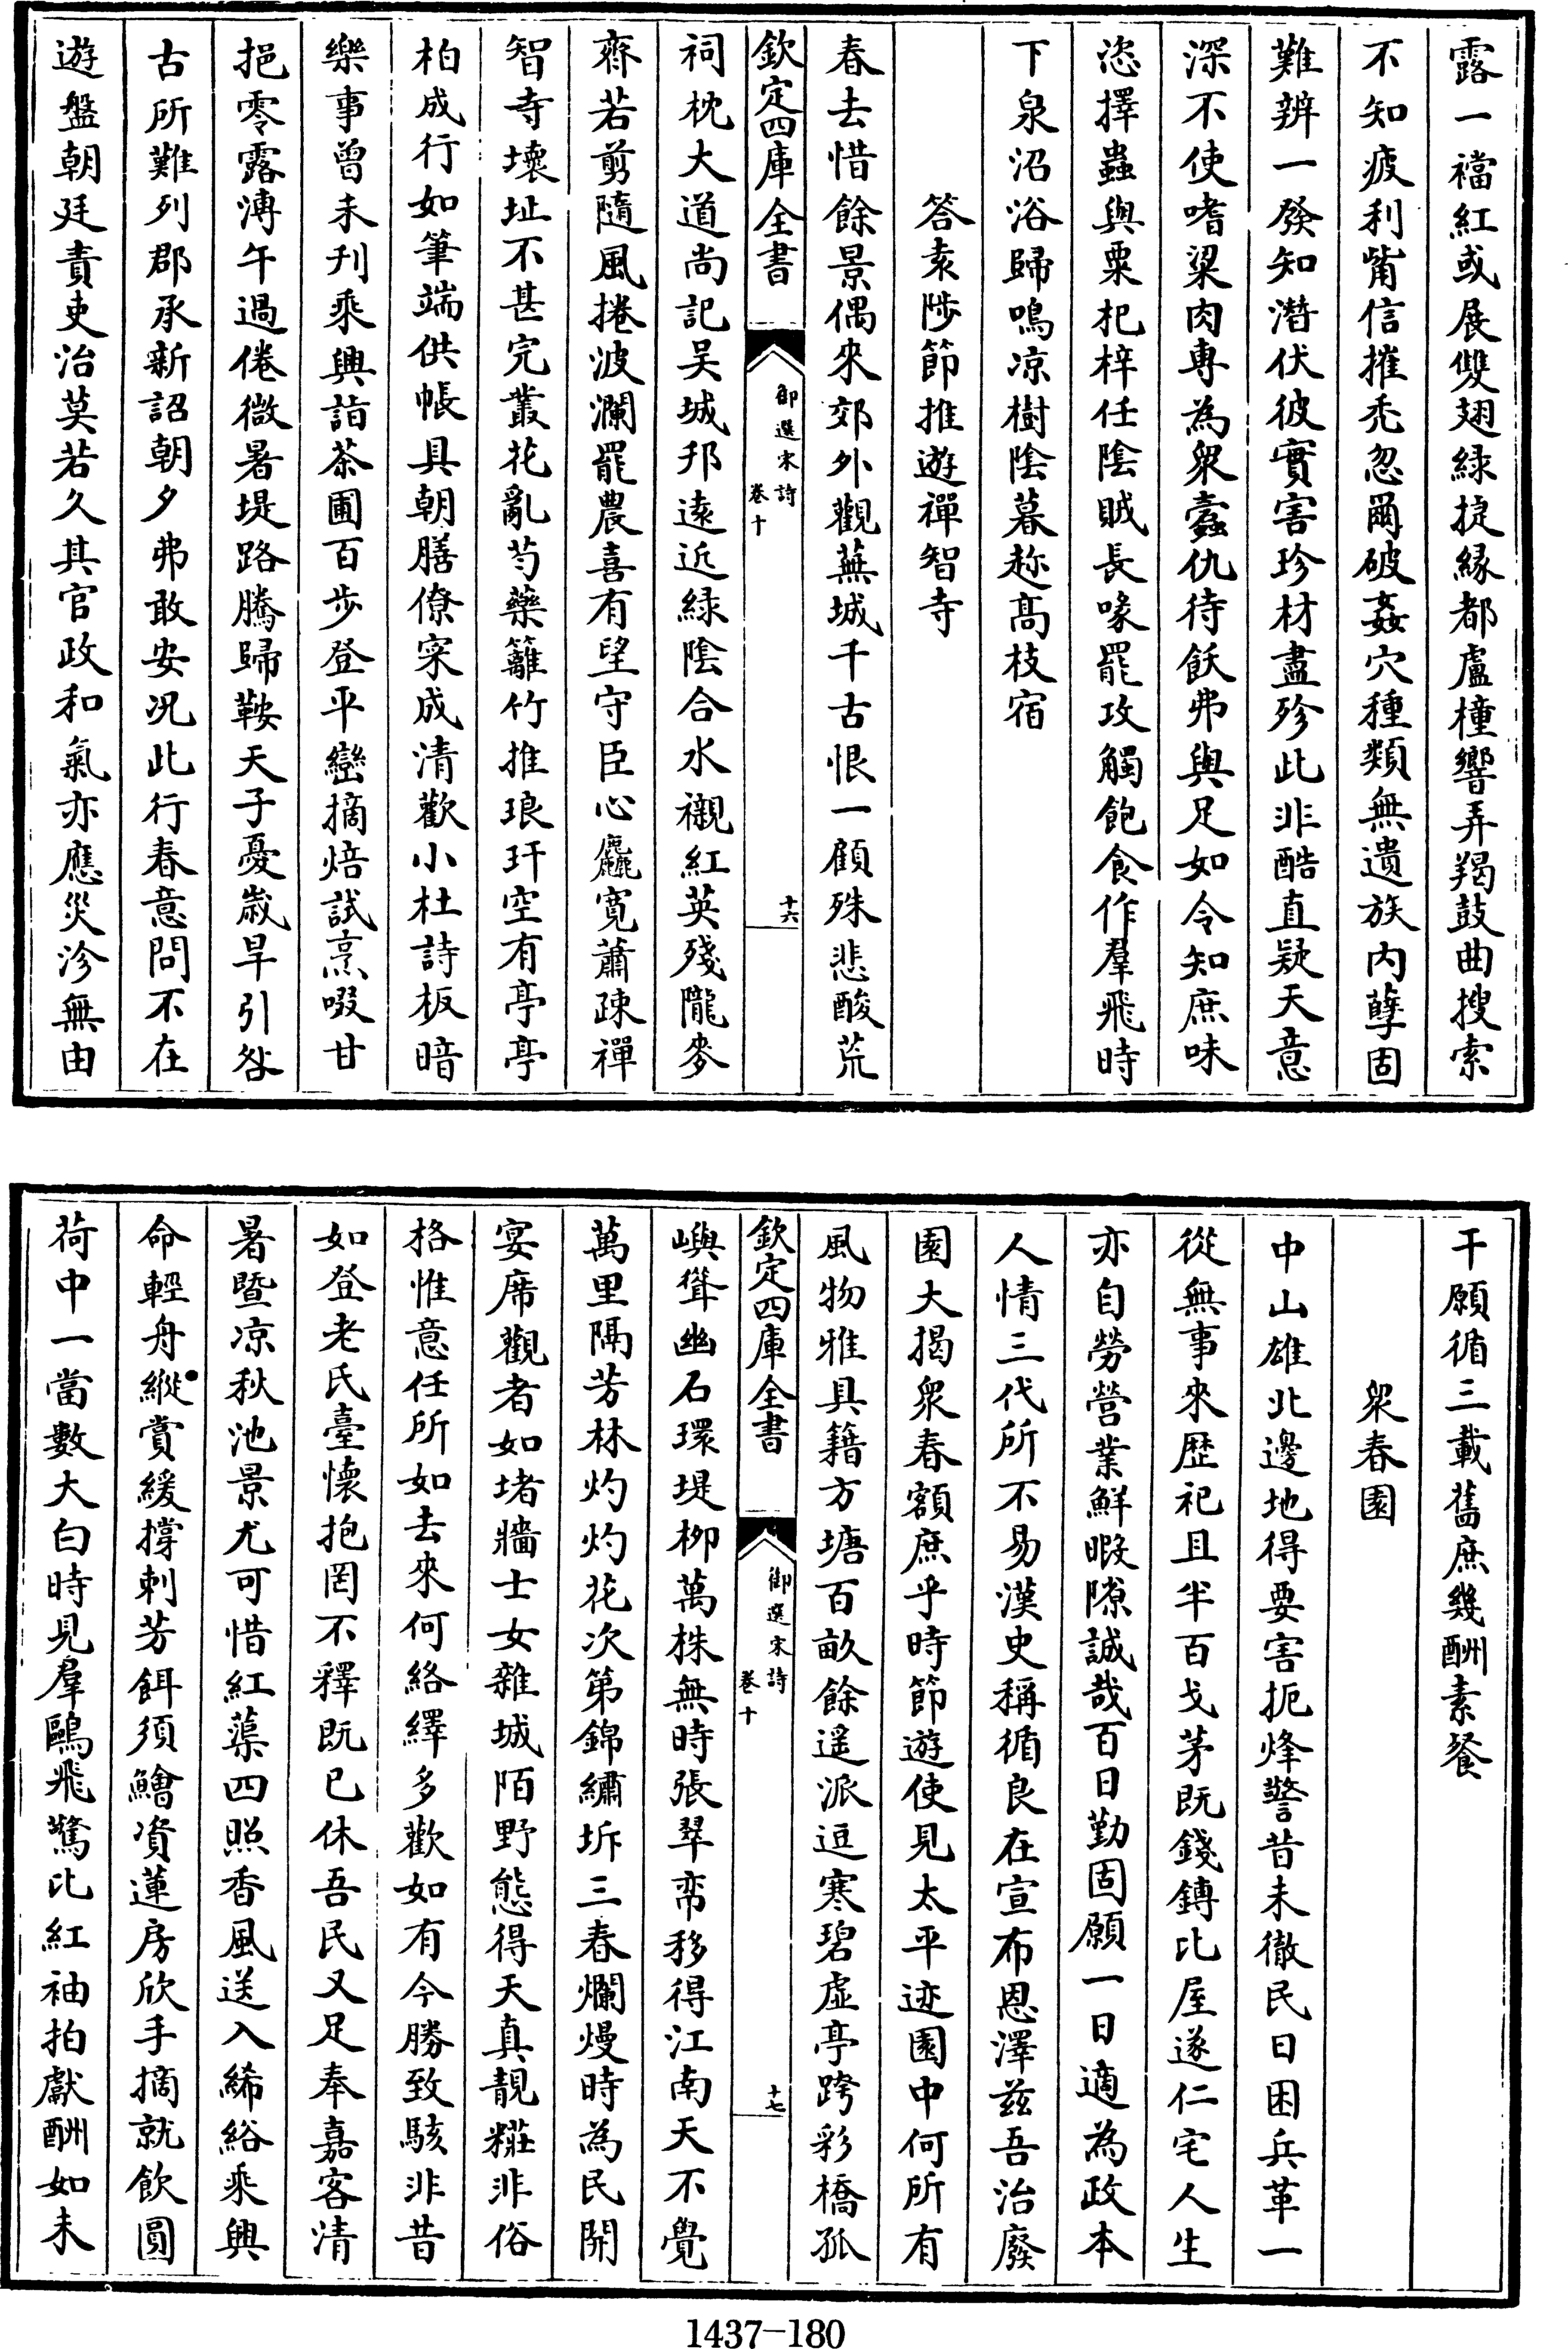 露一襠紅或展雙翅緑捷緣都盧橦響弄羯鼓曲搜索
不知疲利觜信摧禿忽爾破姦穴種類無遺族内孽固
難辨一發知潛伏彼實害珍材盡殄此非酷直疑天意
深不使嗜粱肉專為衆蠹仇待飫弗與足如令知庶味
恣擇蟲與粟杞梓任陰賊長喙罷攻觸飽食作羣飛時
下泉沼浴歸鳴凉樹陰暮趂髙枝宿
答袁陟節推遊禪智寺
春去惜餘景偶來郊外觀蕪城千古恨一顧殊悲酸荒
欽定四庫全書
御選宋詩
卷十
十六
祠枕大道尚記吴城邗逺近緑陰合水襯紅英殘隴麥
齊若剪隨風捲波瀾罷農喜有望守臣心麤寛蕭疎禪
智寺壞址不甚完叢花亂芍藥籬竹推琅玕空有亭亭
柏成行如筆端供帳具朝膳僚寀成清歡小杜詩板暗
樂事曾未刋乘興詣茶圃百步登平巒摘焙試烹啜甘
挹零露漙午過倦微暑堤路騰歸鞍天子憂嵗旱引咎
古所難列郡承新詔朝夕弗敢安况此行春意問不在
遊盤朝廷責吏治莫若久其官政和氣亦應災沴無由
干願循三載舊庶幾酬素餐
衆春園
中山雄北邊地得要害扼烽警昔未徹民日困兵革一
從無事來歴祀且半百戈茅既錢鎛比屋遂仁宅人生
亦自勞營業鮮暇隙誠哉百日勤固願一日適為政本
人情三代所不易漢史稱循良在宣布恩澤兹吾治廢
園大揭衆春額庶乎時節遊使見太平迹園中何所有
風物雅具籍方塘百畝餘遥派逗寒碧虚亭跨彩橋孤
欽定四庫全書
御選宋詩
卷十
十七
嶼聳幽石環堤栁萬株無時張翠帟移得江南天不覺
萬里隔芳林灼灼花次第錦繡坼三春爛熳時為民開
宴席觀者如堵牆士女雜城陌野態得天真靚糚非俗
格惟意任所如去來何絡繹多歡如有今勝致駭非昔
如登老氏臺懷抱罔不釋既已休吾民又足奉嘉客清
暑暨凉秋池景尤可惜紅蕖四照香風送入絺綌乘興
命輕舟縱賞緩撐刺芳餌須鱠資蓮房欣手摘就飲圓
荷中一當數大白時見羣鷗飛驚比紅袖拍獻酬如未
1437-180